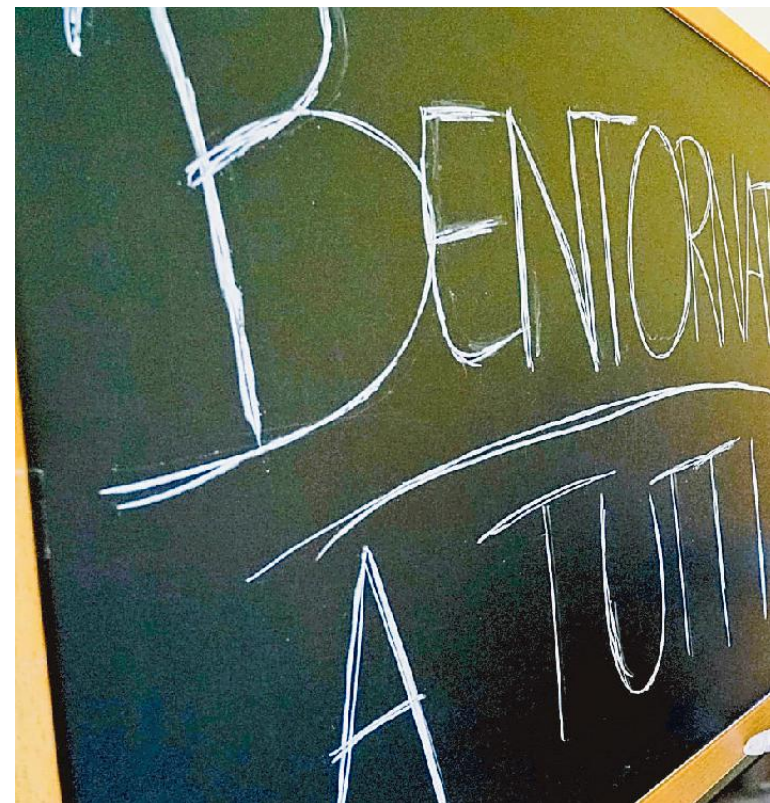 BENTORNAT
A TUTTI